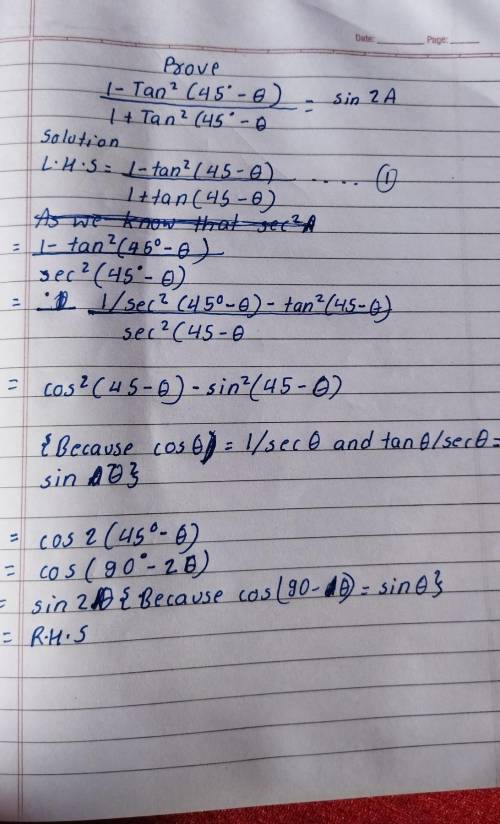 Date: Page:
Prove
1 - Tan² (45° - θ) = sin 2A
1 + Tan² (45° - θ
Solution
L.H.S = 1 - tan² (45 - θ) .... ①
1 + tan (45 - θ)
As we know that sec² A
= 1 - tan² (45° - θ)
sec² (45° - θ)
= 1/sec² (45° - θ) - tan² (45 - θ)
sec² (45 - θ
= cos² (45 - θ) - sin² (45 - θ)
{Because cos θ) = 1/sec θ and tan θ/sec θ =
sin θ}
= cos 2 (45° - θ)
= cos (90° - 2θ)
= sin 2θ {Because cos (90 - θ) = sin θ}
= R.H.S